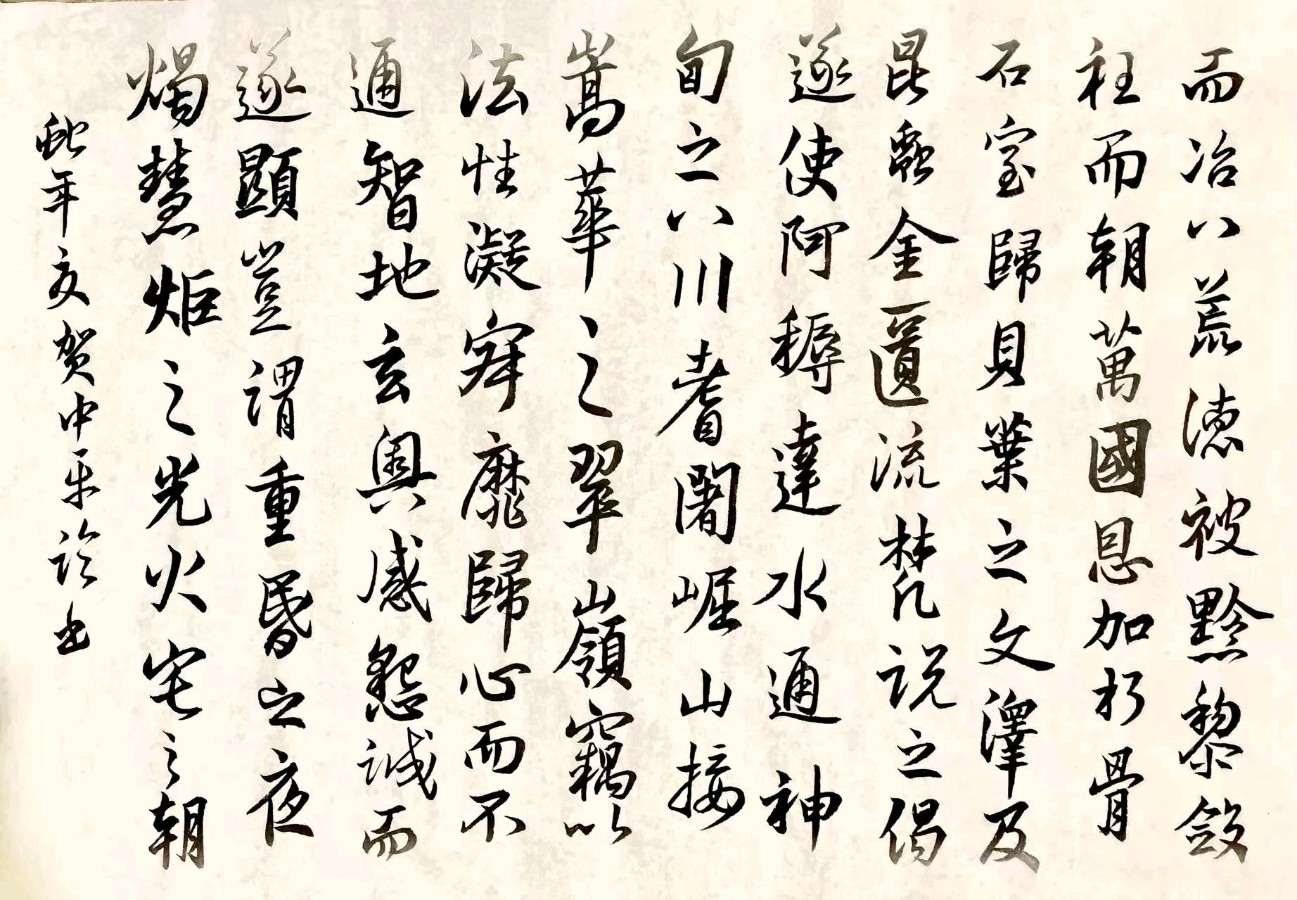 而治八荒德被黔黎斂
衽而朝萬國恩加朽骨
石室歸貝葉之文澤及
昆蟲金匱流梵説之偈
遂使阿耨達水通神
甸之八川耆闍崛山接
嵩華之翠嶺竊以
法性凝寂靡歸心而不
通智地玄奥感懇誠而
遂顯豈謂重昏之夜
燭慧炬之光火宅之朝
年夏贺中平 书